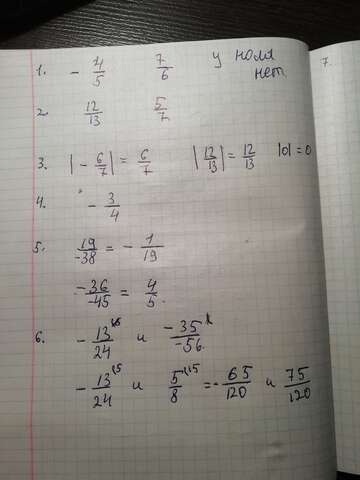 1. - 4/5 7/6 у ноля нет
2. 12/13 5/7
3. |- 6/7| = 6/7 |12/13| = 12/13 |0| = 0
4. - 3/4
5. 19/-38 = - 1/19
-36/-45 = 4/5
6. - 13/24 и -35/-56
- 13/24 и 5/8 = - 65/120 и 75/120
7.